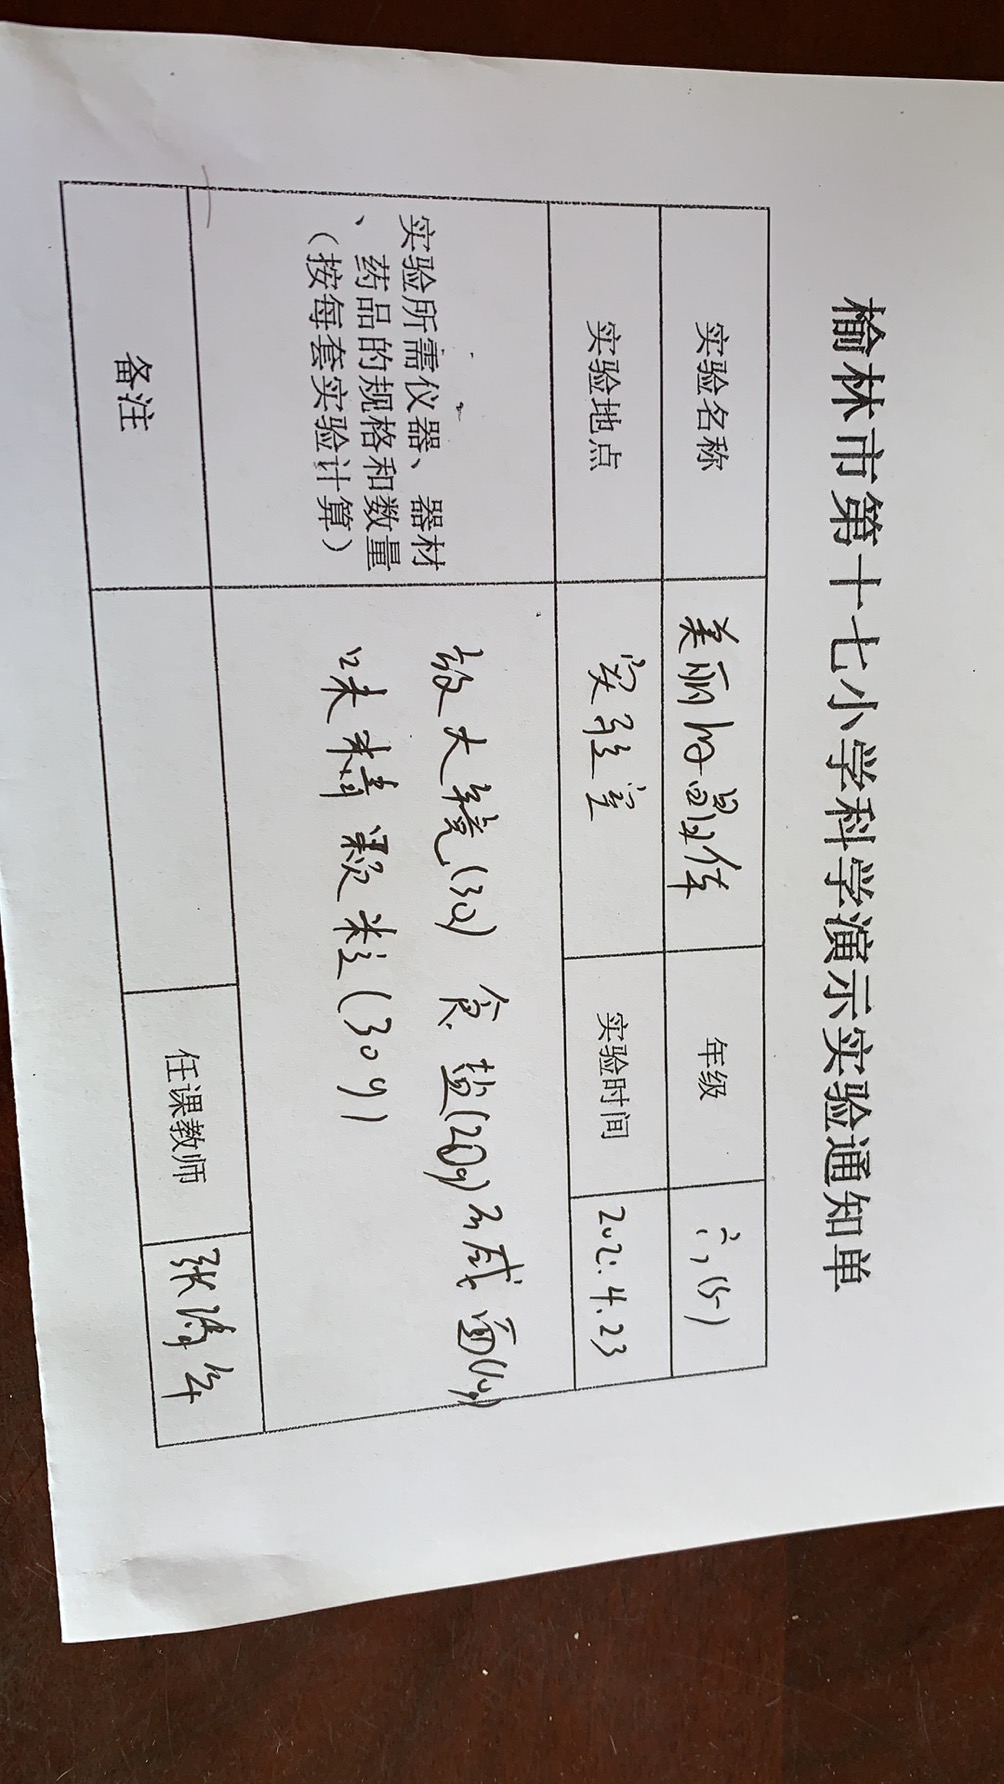 榆林市第十七小学科学演示实验通知单
实验名称 美丽的晶体 年级
实验地点 实验室 实验时间 4.23
实验所需仪器、器材
、药品的规格和数量
（按每套实验计算）
放大镜(30) 食盐(20g) 碱面(10g)
味精颗粒(30g)
备注 任课教师 张